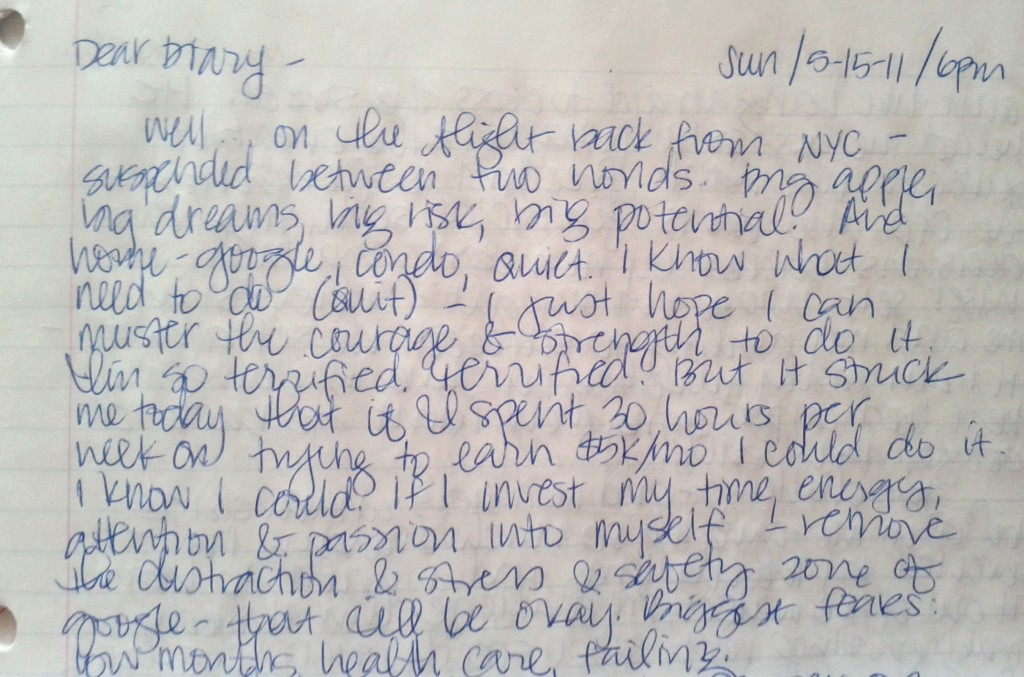 Dear Diary - Sun/5-15-11/6pm
Well... on the flight back from NYC -
suspended between two worlds. Big apple,
big dreams, big risk, big potential. And
home - google, condo, quiet. I know what I
need to do (quit) - I just hope I can
muster the courage & strength to do it
I'm so terrified. Terrified. But it struck
me today that if I spent 30 hours per
week on trying to earn $5k/mo I could do it.
I know I could. If I invest my time, energy,
attention & passion into myself - remove
the distraction & stress & safety zone of
google - that all be okay. Biggest fears:
low months, health care, failing.